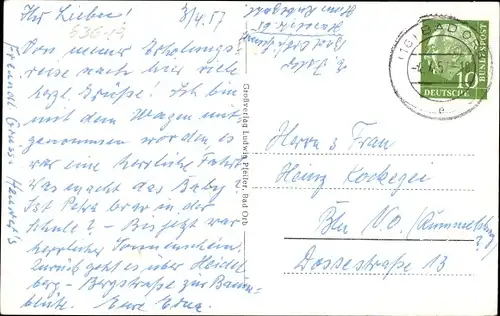 Ihr Lieben! 3/4.57
536-13
Von meiner Erholungs-
reise nach hier viele
herzl. Grüße! Ich bin
mit dem Wagen mit-
genommen worden, es
war eine herrliche Fahrt.
Was macht das Baby?
Ist Petra brav in der
Schule? - Bis jetzt war
herrlicher Sonnenschein
Zurück geht es über Heidel-
berg - Bergstraße zur Baum-
blüte. Eure Edna.
Freundl. Grüsse
Großverlag Ludwig Pfeifer, Bad Orb
(16) BAD ORB
e
10
DEUTSCHE
BUNDESPOST
Herrn u. Frau
Heinz
Bln N.O. (Rummelsburg)
Dossestraße 13